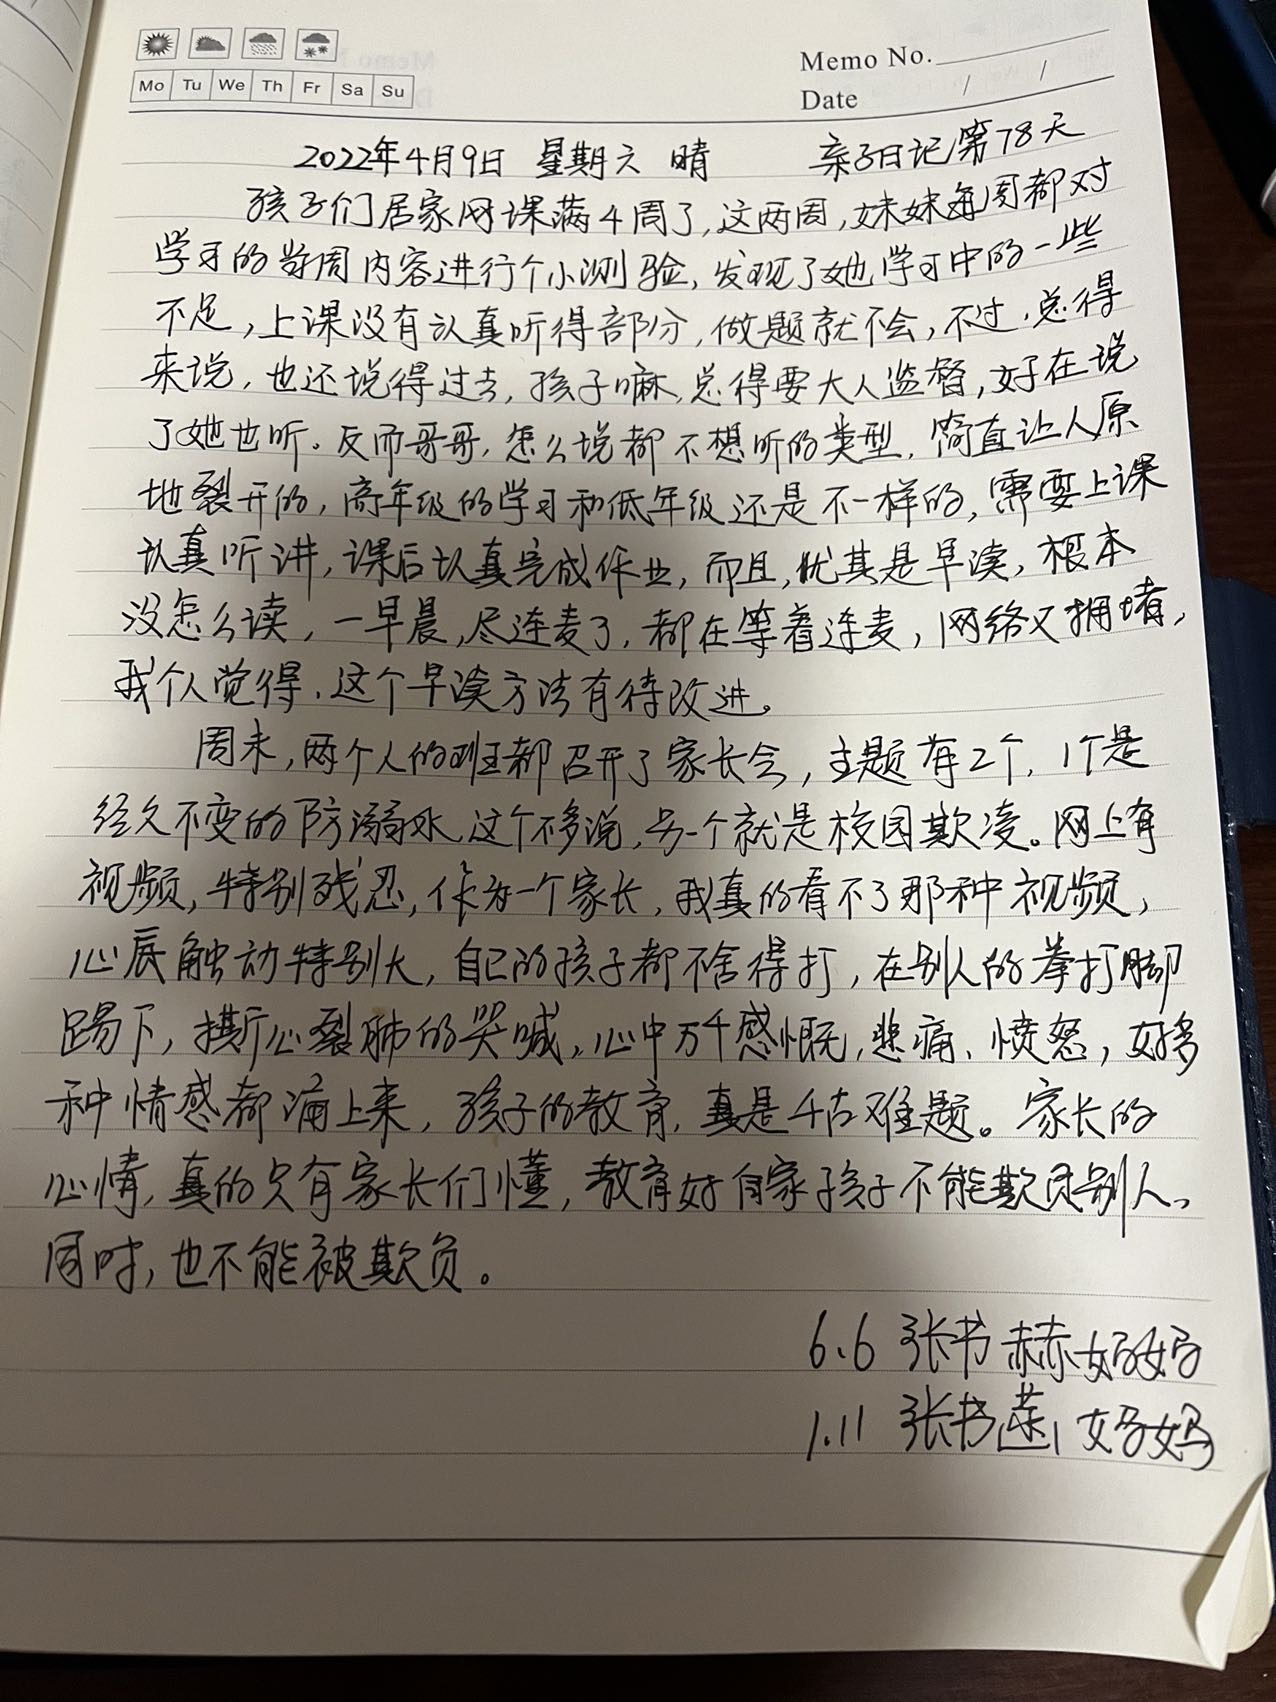 Mo Tu We Th Fr Sa Su
Memo No.
Date / /
2022年4月9日 星期六 晴 亲子日记第78天
孩子们居家网课满4周了,这两周,妹妹每周都对
学习的当周内容进行个小测验,发现了她学习中的一些
不足,上课没有认真听得部分,做题就不会,不过,总得
来说,也还说得过去,孩子嘛,总得要大人监督,好在说
了她也听。反而哥哥,怎么说都不想听的类型,简直让人原
地裂开的,高年级的学习和低年级还是不一样的,需要上课
认真听讲,课后认真完成作业,而且,尤其是早读,根本
没怎么读,一早晨,尽连麦了,都在等着连麦,网络又拥堵,
我个人觉得,这个早读方法有待改进。
周末,两个人的班都召开了家长会,主题有2个,1个是
经久不变的防溺水,这个不多说,另一个就是校园欺凌。网上有
视频,特别残忍,作为一个家长,我真的看不了那种视频,
心底触动特别大,自己的孩子都不舍得打,在别人的拳打脚
踢下,撕心裂肺的哭喊,心中万千感慨,悲痛、愤怒,好多
种情感都涌上来,孩子的教育,真是千古难题。家长的
心情,真的只有家长们懂,教育好自家孩子不能欺负别人,
同时,也不能被欺负。
6.6 张书赫妈妈
1.11 张书 妈妈